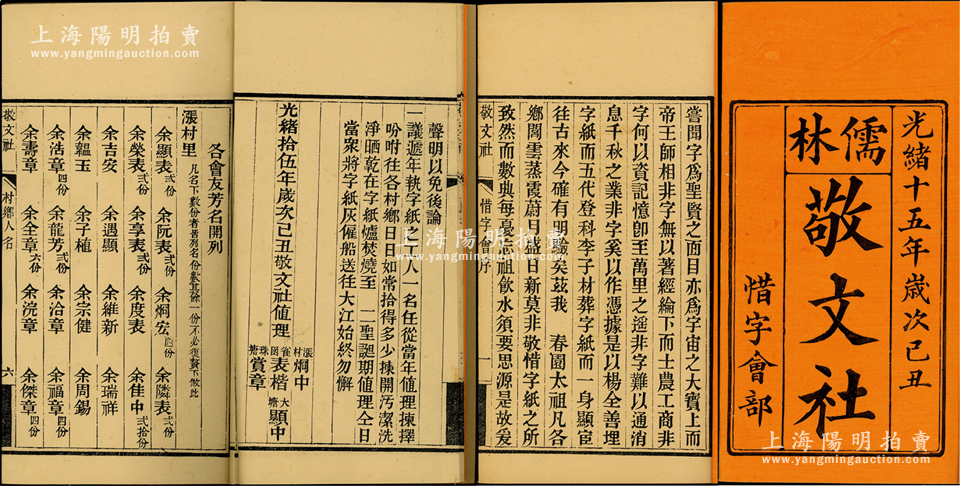 光緒十五年歲次己丑
儒林
敬文社
惜字會部
嘗聞字爲聖賢之面目亦爲宇宙之大寶上而
帝王師相非字無以著經綸下而士農工商非
字何以資記憶卽至萬里之遙非字難以通消
息千秋之業非字奚以作憑據是以楊全善埋
字紙而五代登科李子材葬字紙而一身顯宦
往古來今確有明驗矣茲我 春園太祖凡各
鄉閭雲蒸霞蔚月盛日新莫非敬惜字紙之所
致然而數典每憂忘祖飲水須要思源是故爰
敬文社
惜字會序
一
聲明以免後論
一議遞年執字紙之工人一名任從當年值理揀擇
吩咐往各村鄉日日如常拾得多少揀開污潔洗
淨晒乾在字紙爐焚燒至 二聖誕期值理仝日
當衆將字紙灰僱船送往大江始終勿懈
光緒拾伍年歲次己丑敬文社值理
漲村 烱中
雀囡 表楷
大塘 顯中
珠塘 賞章
各會友芳名開列
漲村里
凡名下數份者皆列名份數其餘一份不必復贅下倣此
余顯表弍份 余阮表弍份 余烱宏四份 余隣表弍份
余榮表弍份 余享表弍份 余度表 余佳中弍拾份
余吉安 余遇顯 余維新 余瑞祥
余韞玉 余子植 余宗健 余周錫
余浩章四份 余龍芳弍份 余治章 余福章四份
余壽章 余全章六份 余浣章 余傑章四份
敬文社
村鄉人名
六
上海陽明拍賣
www.yangmingauction.com
上海陽明拍賣
www.yangmingauction.com
上海陽明拍賣
www.yangmingauction.com